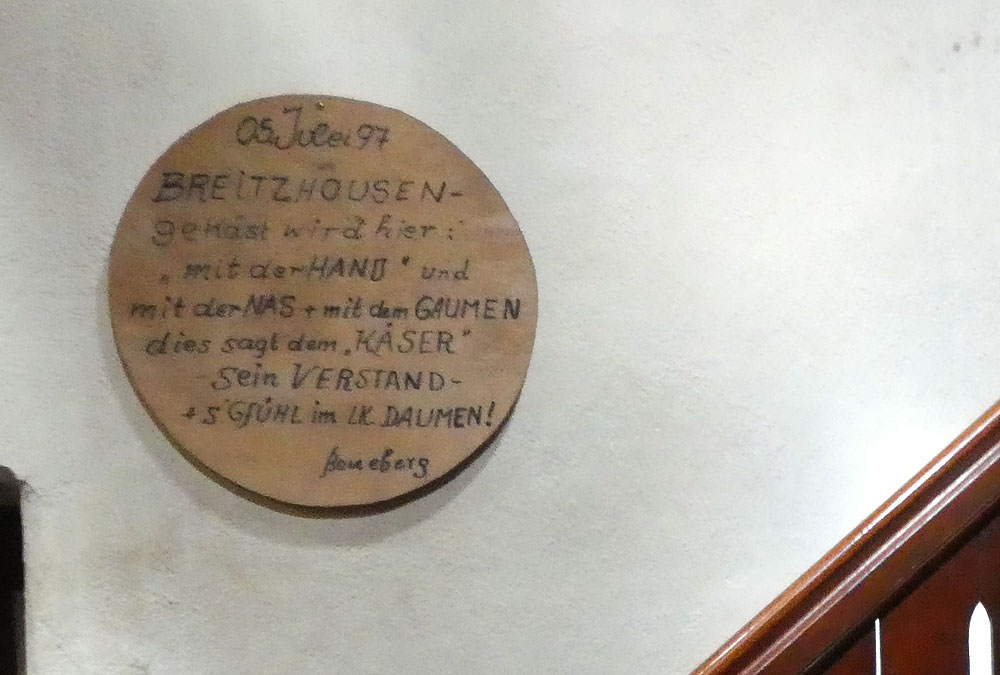 05. Julei 97
BREITZHOUSEN-
gekäst wird hier :
„mit der HAND" und
mit der NAS + mit dem GAUMEN
dies sagt dem „KÄSER"
sein VERSTAND-
+ S'GFÜHL im LK. DAUMEN!